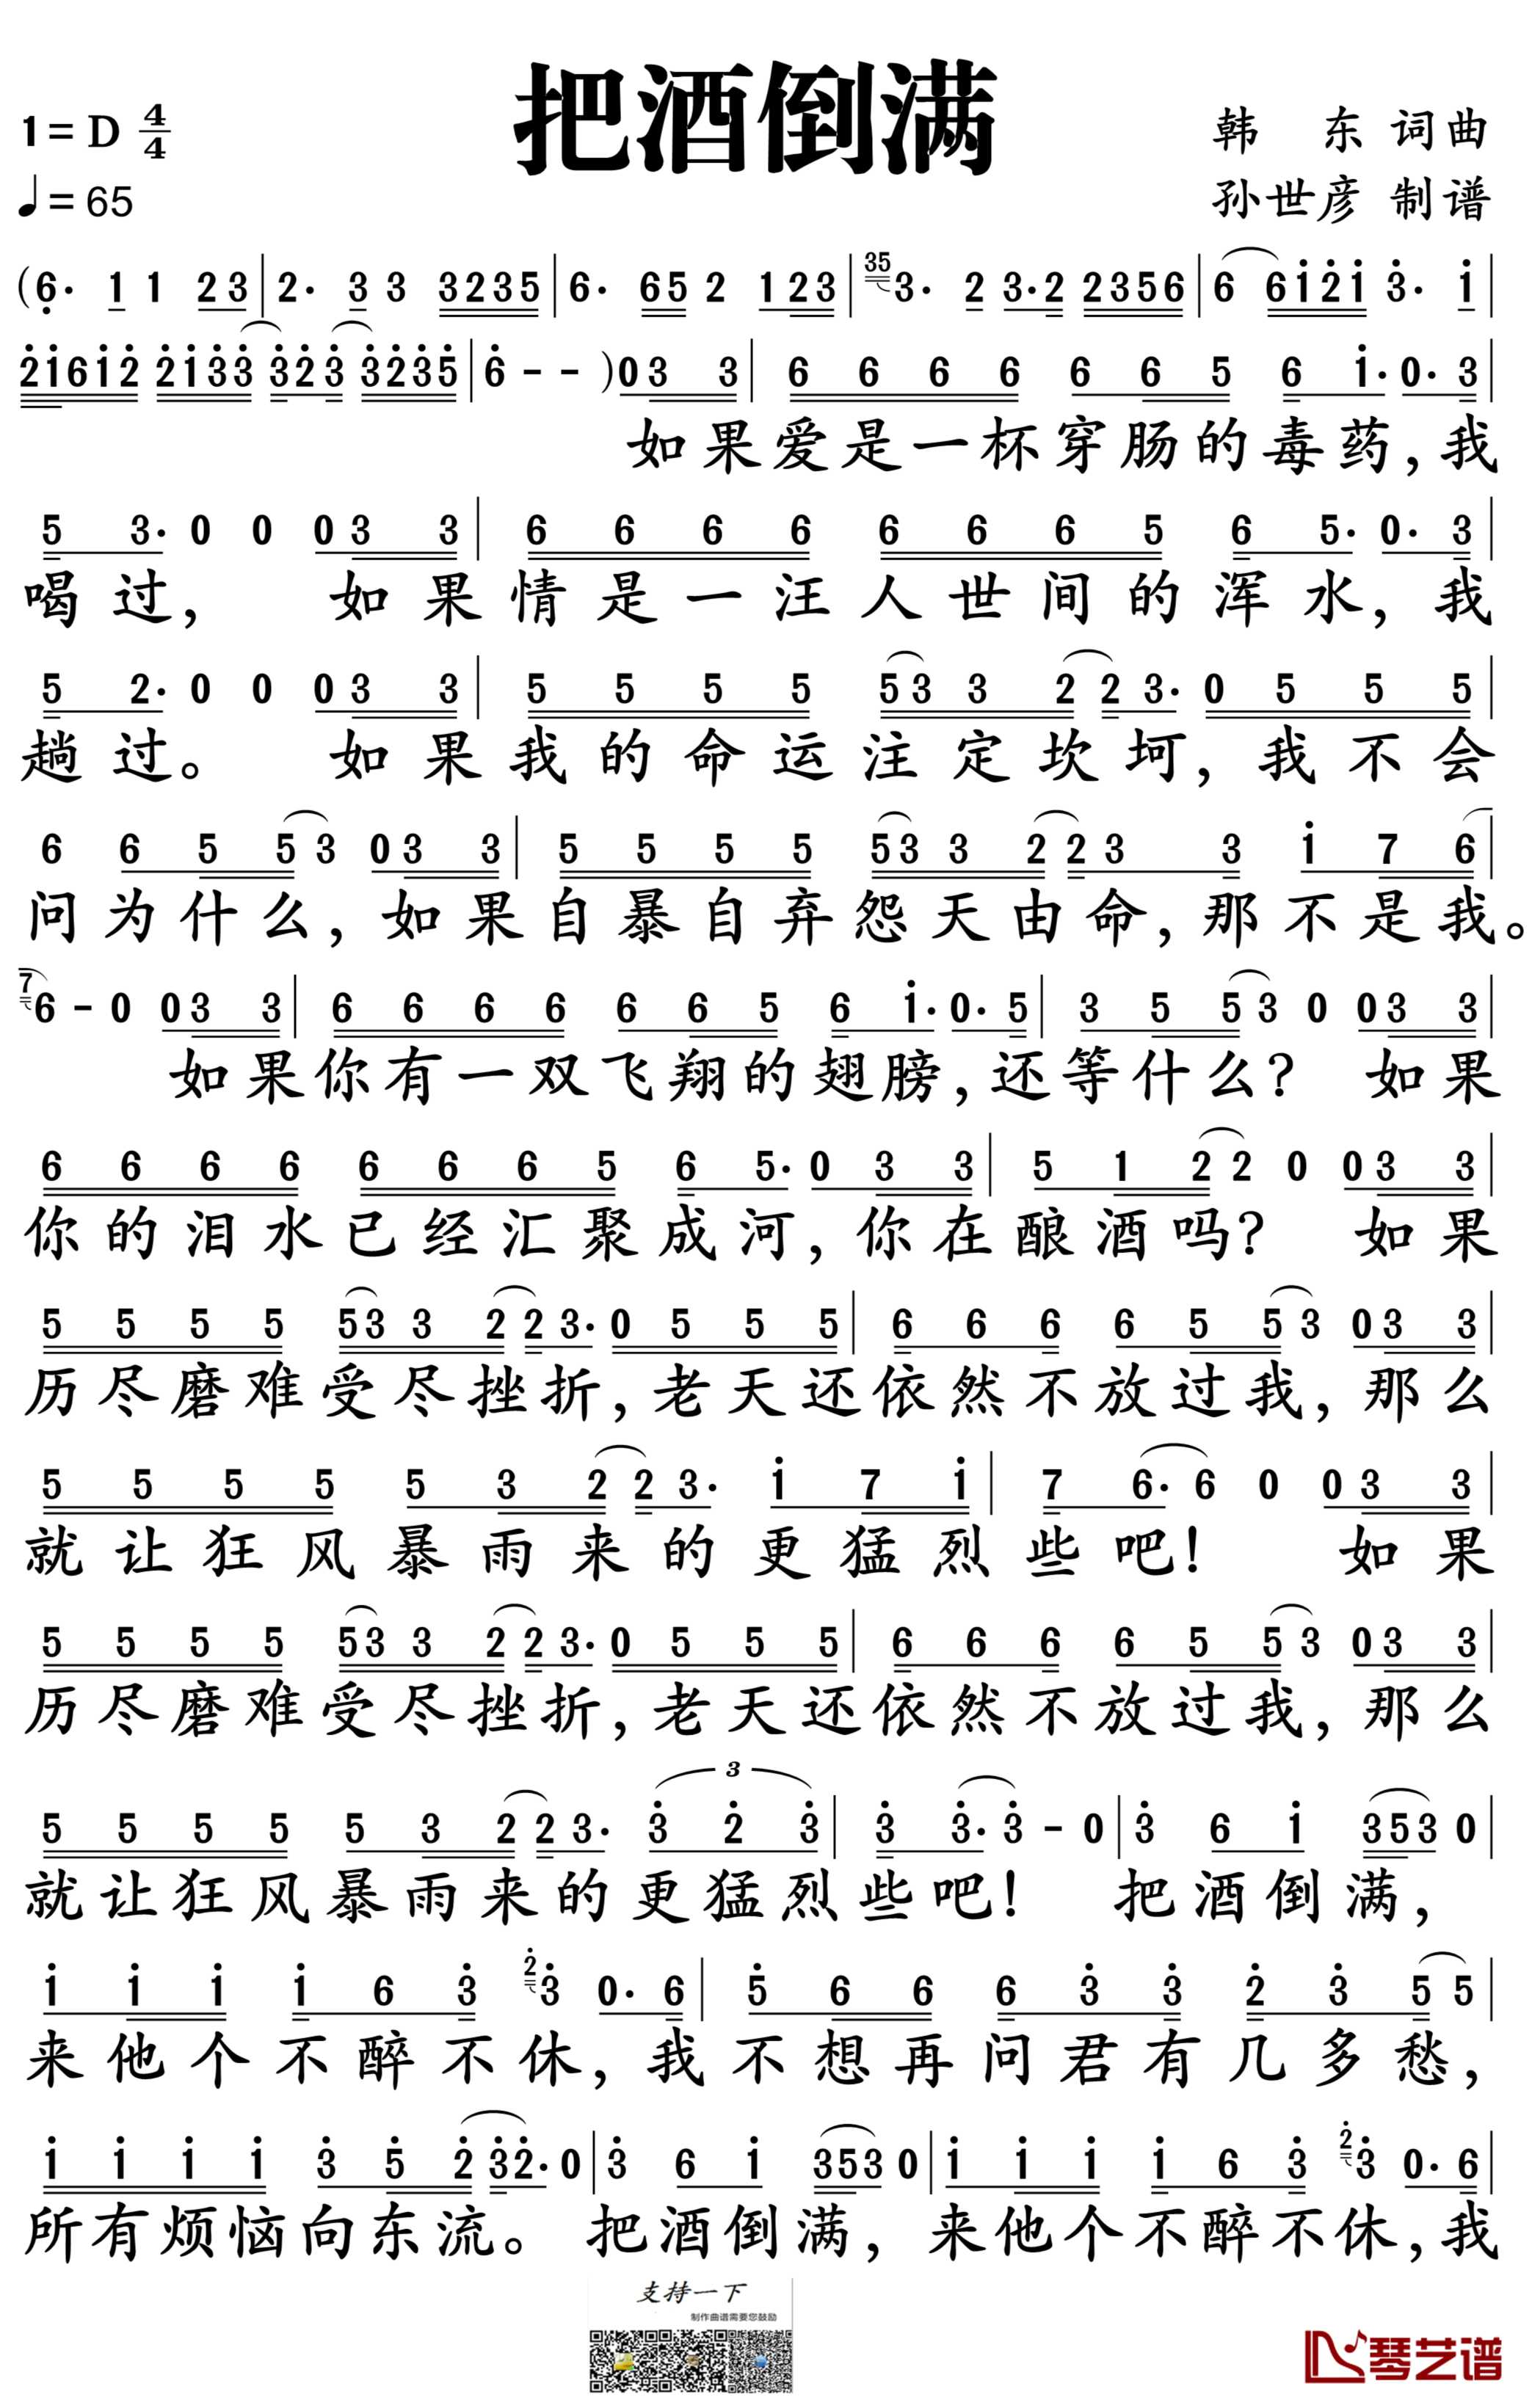 把酒倒满
1=D 4/4
♩=65
韩 东 词曲
孙世彦 制谱
(6̣· 1 1 23|2· 3 3 3235|6· 65 2 123|35 3· 2 3·2 2356|6 6i2̇i 3̇· i|
2̇i6i2̇ 2̇i3̇3̇ 3̇2̇3̇ 3̇2̇3̇5̇|6̇ - - )03 3|6 6 6 6 6 6 5 6 i·0· 3|
如果爱是一杯穿肠的毒药,我
5 3·0 0 03 3|6 6 6 6 6 6 6 5 6 5·0· 3|
喝过, 如果情是一汪人世间的浑水,我
5 2·0 0 03 3|5 5 5 5 53 3 22 3·0 5 5 5|
趟过。 如果我的命运注定坎坷,我不会
6 6 5 53 03 3|5 5 5 5 53 3 22 3 3 i 7 6|
问为什么,如果自暴自弃怨天由命,那不是我。
7 6 - 0 03 3|6 6 6 6 6 6 5 6 i·0· 5|3 5 53 0 03 3|
如果你有一双飞翔的翅膀,还等什么? 如果
6 6 6 6 6 6 6 5 6 5·0 3 3|5 1 22 0 03 3|
你的泪水已经汇聚成河,你在酿酒吗? 如果
5 5 5 5 53 3 22 3·0 5 5 5|6 6 6 6 5 53 03 3|
历尽磨难受尽挫折,老天还依然不放过我,那么
5 5 5 5 5 3 22 3· i 7 i|7 6·6 0 03 3|
就让狂风暴雨来的更猛烈些吧! 如果
5 5 5 5 53 3 22 3·0 5 5 5|6 6 6 6 5 53 03 3|
历尽磨难受尽挫折,老天还依然不放过我,那么
3
5 5 5 5 5 3 22 3· 3̇ 2̇ 3̇|3̇ 3̇·3̇ - 0|3̇ 6 i 353 0|
就让狂风暴雨来的更猛烈些吧! 把酒倒满,
i i i i 6 3̇ 2̇ 3̇ 0· 6|5̇ 6 6 6 3̇ 3̇ 2̇ 3̇ 5 5|
来他个不醉不休,我不想再问君有几多愁,
i i i i 3̇ 5̇ 2̇ 3̇2̇·0|3̇ 6 i 353 0|i i i i 6 3̇ 2̇ 3̇ 0· 6|
所有烦恼向东流。 把酒倒满,来他个不醉不休,我
支持一下
制作曲谱需要您鼓励
琴艺谱